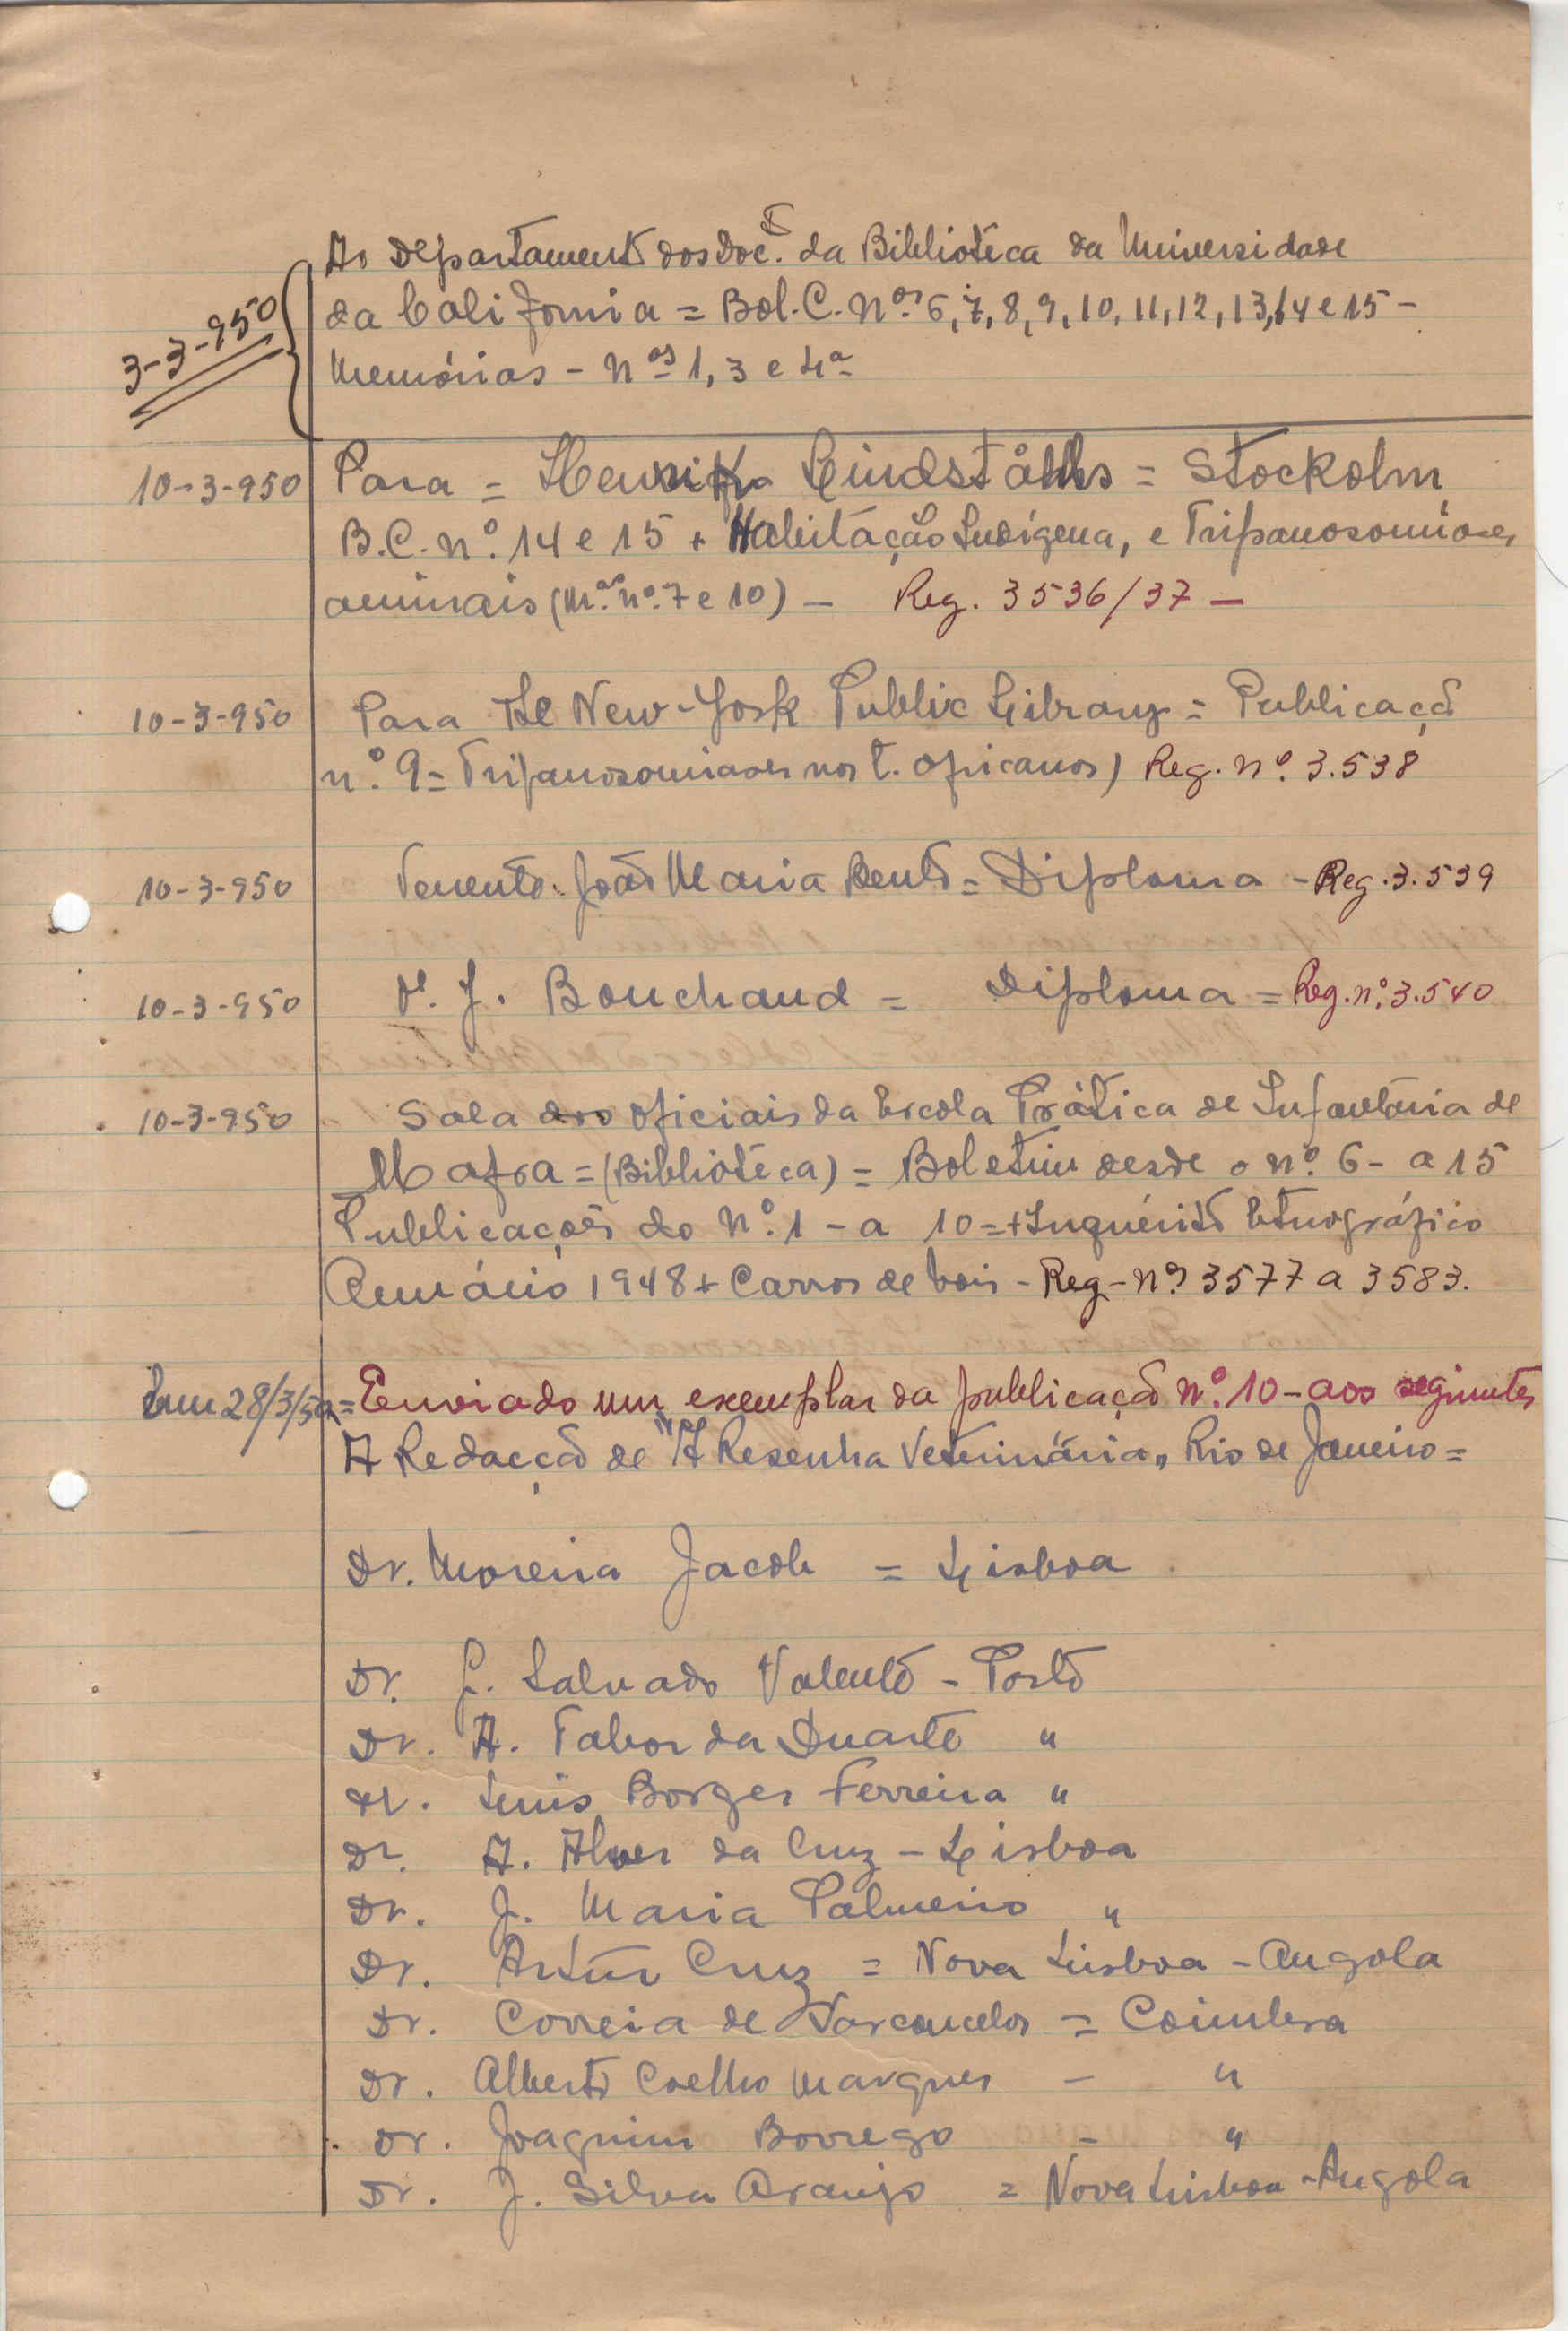 Ao Departamento dos Doc.tos da Biblioteca da Universidade
3-3-950 da California = Bol. C. nos. 6, 7, 8, 9, 10, 11, 12, 13, 14 e 15 -
Memórias - nos 1, 3 e 4 -
10-3-950 Para = Henrik Lindståhls = Stockolm
B.C. nº. 14 e 15 + Habitação Indígena, e Tripanosomiases
animais (M.as nº. 7 e 10) - Reg. 3536/37 -
10-3-950 Para The New-York Public Library = Publicação
nº. 9 = Tripanosomiases nos t. africanos) Reg. nº. 3.538
10-3-950 Tenente João Maria Bento = Diploma - Reg. 3.539
10-3-950 J. Bouchaud = Diploma = Reg. nº. 3.540
10-3-950 Sala dos Oficiais da Escola Prática de Infantaria de
Mafra = (Biblioteca) = Boletim desde o nº. 6 - a 15
Publicações do nº. 1 - a 10 = + Inquérito Etnográfico
Anuário 1948 + Carros de bois - Reg - nº. 3577 a 3583.
Em 28/3/50 = Enviado um exemplar da publicação nº. 10 - aos seguintes
A Redacção de "A Resenha Veterinária" Rio de Janeiro =
Dr. Moreira Jacob = Lisboa
Dr. J. Salvado Valente - Porto
Dr. A. Tabor da Duarte "
Dr. Luis Borges Ferreira "
Dr. A. Alves da Cruz - Lisboa
Dr. J. Maria Palmeiro "
Dr. Artur Cruz = Nova Lisboa - Angola
Dr. Correia de Vasconcelos = Coimbra
Dr. Alberto Coelho Marques - "
Dr. Joaquim Borrego - "
Dr. J. Silva Araujo = Nova Lisboa - Angola